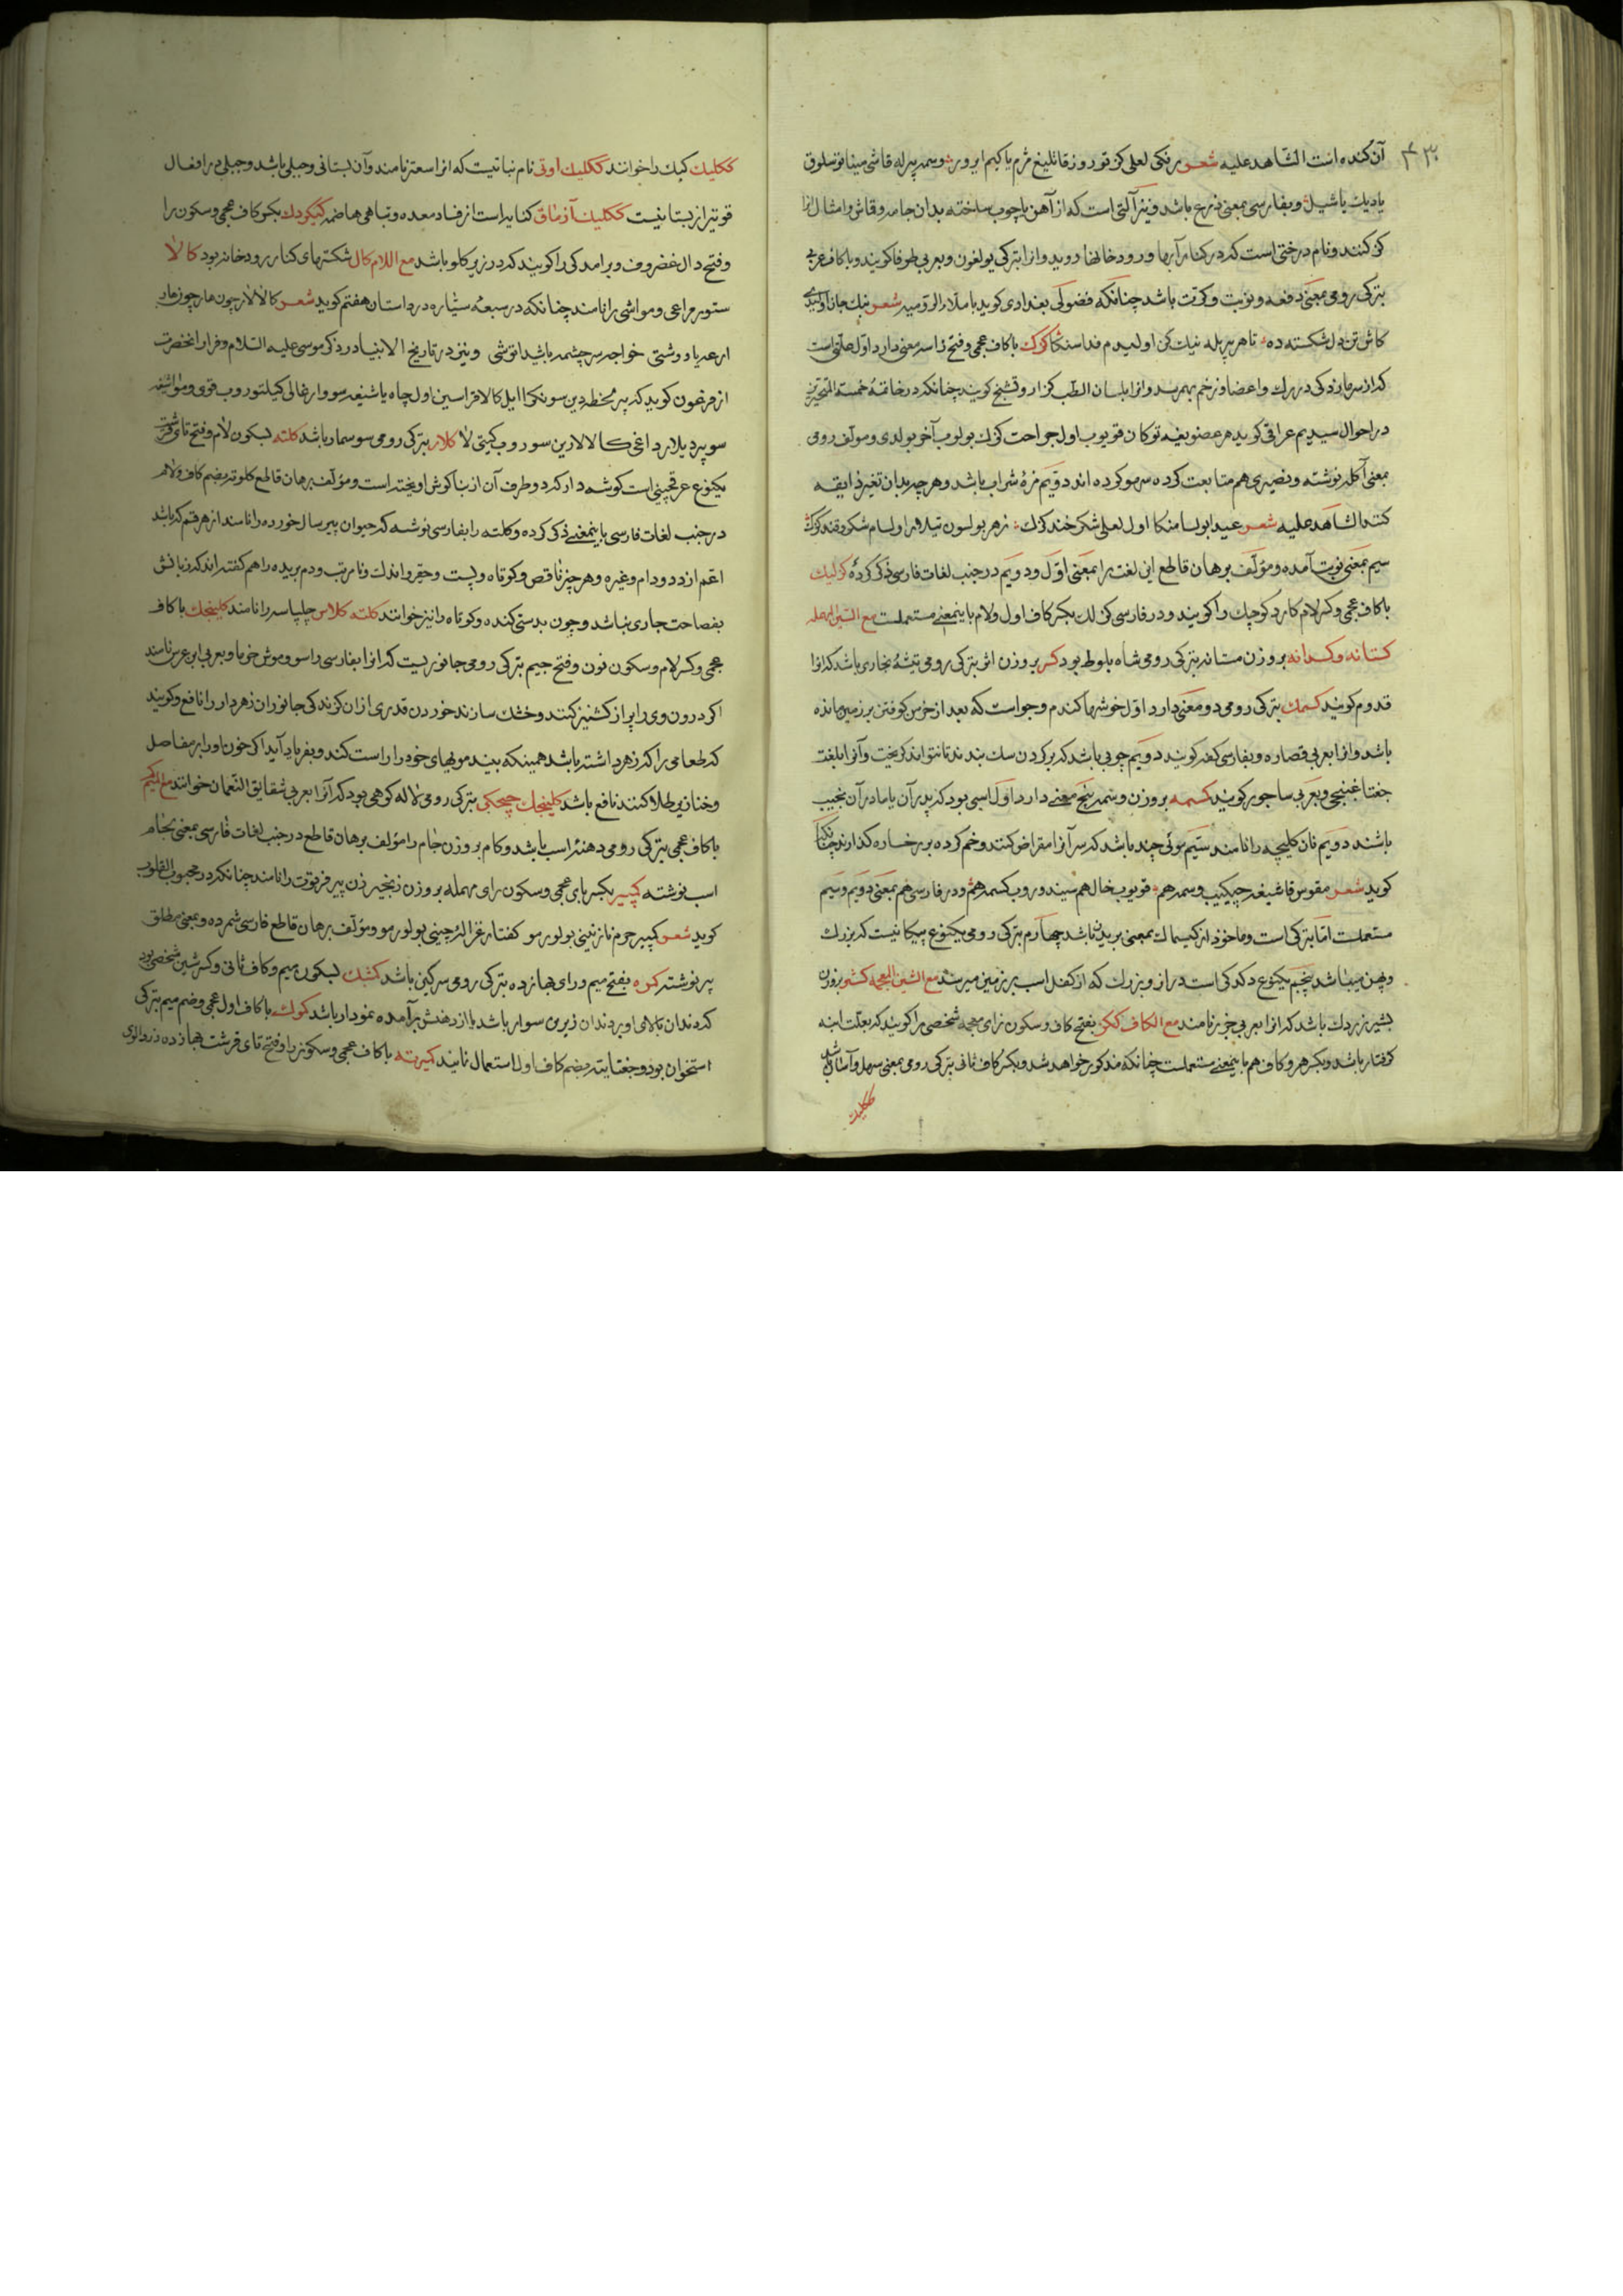 ۴۳۰
آن کنده است الشاهد علیه شعر رنکی لعلی کز توروز قانلیغ مژم یا کیم ایرور وسمه بیرله قاشی مینا توسلوق
یادیك یاشیل و بفارسی بمعنی ذرع باشد و نیز آلتی است که از آهن یا چوب ساخته بدان جامه و قاش و امثال انرا
کز کنند و نام درختی است که در کنار آبها و رودخانها روید و انرا بترکی یولغون و بعربی طرفا کویند و با کاف عربی
بترکی رومی بمعنی دفعه و نوبت و کرّت باشد چنانکه فضولی بغدادی کوید با ملاء الرومیه شعر نیك جانا ولیدی
کاش تن دل شکسته ده تا هر بیریله نیك کن اولیدم فدا سنکا کزك با کاف عجمی و فتح زا سه معنی دارد اوّل علتی است
که از سرمازدکی در رك و اعضا و زخم بهم رسد و انرا بلسان الطب کزار و قشنج کویند چنانکه در خاتمهٔ خمسة المتحیرین
در احوال سیدیم عراقی کوید هر عضویغه توکان قویوب اول جراحت کزك بولوب آخر بولدی و مولف رومی
بمعنی آکله نوشته و نصیری هم متابعت کرده سهو کرده اند دویّم مزهٔ شراب باشد و هر چه بدان تغیر ذایقه
کنند الشاهد علیه شعر عیدا بولسا منکا اول لعلی شکرخند کزك زهر بولسون تیلاهر اولسام شکر و قند کزك
سیم بمعنی نوبت آمده و مؤلف برهان قاطع این لغت را بمعنی اوّل و دویّم در جنب لغات فارسی ذکر کرده کزلیك
با کاف عجمی و کسر لام کارد کوچك را کویند و در فارسی کزلك بکسر کاف اول و لام باینمعنی مستعملست مع السین المهمله
کستانه و کسدانه بر وزن مستانه بترکی رومی شاه بلوط بود کسر بر وزن اثر بترکی رومی تیشهٔ نجاری باشد که انرا
قدوم کویند کسمك بترکی رومی دو معنی دارد اوّل خوشهای کندم و جو است که بعد از خرمن کوفتن بر زمین مانده
باشد و انرا بعربی قصاره و بفارسی کفه کویند دویّم چوبی باشد که بر کردن سك بندند تا نتواند کریخت و آنرا بلغت
جغتا غبنچی و بعربی ساجور کویند کسمه بر وزن وسمه پنج معنی دارد اوّل اسبی بود که پدر آن یا مادر آن نجیب
باشند دویّم نان کلیچه را نامند سیّم موئی چند باشد که سر آنرا مقراض کنند و خم کرده بر رخساره کذارند چنانکه
کوید شعر مقوس قاشیغه چیکیب وسمه هم قویوب خال هم سیندوروب کسمه هم و در فارسی هم بمعنی دویم و سیّم
مستعملست امّا بترکی است و ماخوذ از کیسماك بمعنی بریدن باشد چهارم بترکی رومی یکنوع پیکانیست که بزرك
و پهن میباشد پنجم یکنوع دکدکی است دراز و بزرك که از کفل اسب بر زمین میرسد مع الشین المعجمه کشر بوزن
بشیر زردك باشد که انرا بعربی جزر نامند مع الکاف ککز بفتح کاف و سکون زای معجمه شخصی را کویند که بعلت ابنه
کرفتار باشد و بکسر هر دو کاف هم باینمعنی مستعملست چنانکه مذکور خواهد شد و بکسر کاف ثانی بترکی رومی بمعنی سهل و آسان باشد
ککلیك
ککلیك کبك را خوانند ککلیك اوتی نام نباتیست که انرا سعتر نامند و آن بستانی و جبلی باشد و جبلی در افعال
قویتر از بستانیست ککلیك آزماق کنایه است از فساد معده و تباهی هاضمه کیکردك بکسر کاف عجمی و سکون را
و فتح دال غضروف و برامدکی را کویند که در زیر کلو باشد مع اللام کال شکتهای کنار رودخانه بود کالا
ستور مراعی و مواشی را نامند چنانکه در سبعهٔ سیّاره در داستان هفتم کوید شعر کالالار چون هارچوزماق
ارعه یا و وشتی خواجه سرچشمه باشیدا توشی و نیز در تاریخ الانبیا در ذکر موسی علیه السّلام و فرار انحضرت
از فرعون کوید که بیر محظه دین سونکرا ایل کالا قراسین اول چاه باشیغه سووارغالی کیلتوروب قوی و مواشیغه
سو بیردیلار داغی کالالارین سوروب کیتی لا کلار بترکی رومی سوسمار باشد کلته بسکون لام و فتح تای قرشت
یکنوع عرقچینی است کوشه دار که دو طرف آن از بناکوش اویخته است و مؤلف برهان قاطع کلوته بضم کاف و لام
در جنب لغات فارسی باینمعنی ذکر کرده و کلته را بفارسی نوشته که حیوان پیر سال خورده را نامند از هر قسم که باشد
اعّم از دد و دام و غیره و هر چیز ناقص و کوتاه و پست و حقیر و اندك و نامرتب و دم بریده را هم کفته اند که زبانش
بفصاحت جاری نباشد و چون بدستی کنده و کوتاه را نیز خوانند کلته کلاس چلپاسه را نامند کلینجك با کاف
عجمی و کسر لام و سکون نون و فتح جیم بترکی رومی جانوریست که انرا بفارسی راسو و موش خرما و بعربی ابن عرس نامند
اکر درون وی را پر از کشنیز کنند و خشك سازند خوردن قدری از ان کزندکی جانوران زهردار را نافع و کویند
که طعامی را که زهر داشته باشد همینکه بیند مویهای خود را راست کند و بفریاد آید اکر خون او را بر مفاصل
و خنازیر طلا کنند نافع باشد کلینجك چیچکی بترکی رومی لاله کوهی بود که آنرا بعربی شقایق النّعمان خوانند مع المیم کم
با کاف عجمی بترکی رومی دهنهٔ اسب باشد و کام بر وزن جام را مؤلف برهان قاطع در جنب لغات فارسی بمعنی لجام
اسب نوشته کمپیر بکسر بای عجمی و سکون رای مهمله بر وزن زنجیر زن پیر فرتوت را نامند چنانکه در محبوب القلوب
کوید شعر کمپیر جوم نازنینی بولورمو کفتار غزاله چینی بولورمو و مؤلف برهان قاطع فارسی شمرده و بمعنی مطلق
پیر نوشته کمره بفتح میم و رای هیا زده بترکی رومی سرکین باشد کمشك بسکون میم و کاف ثانی و کسر شین شخصی بود
که دندان بالای او بر دندان زیرین سوار باشد یا از دهنش برآمده نمودار باشد کموك با کاف اول عجمی و ضم میم بترکی
استخوان بود و جغتایه بضم کاف اول استعمال نمایند کمیرته با کاف عجمی و سکون را و فتح تای قرشت هیازده